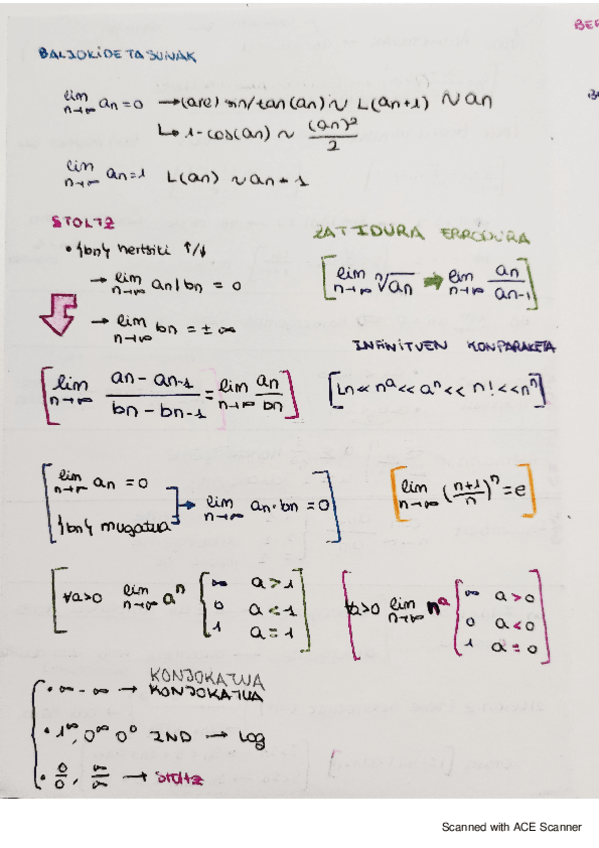 BALIOKIDETASUNAK
lim n→∞ an = 0 → (arc) sin/tan (an) ~ L(an+1) ~ an
↳ 1-cos(an) ~ (an)²/2
lim n→∞ an=1 L(an) ~ an - 1
STOLTZ
• {bn} hertsiki ↑/↓
→ lim n→∞ an/bn = 0
→ lim n→∞ bn = ±∞
[lim n→∞ (an - an-1)/(bn - bn-1) = lim n→∞ an/bn]
ZATIDURA ERRODURA
[lim n→∞ ⁿ√an → lim n→∞ an/an-1]
INFINITUEN KONPARAKETA
[Ln << nᵃ << aⁿ << n! << nⁿ]
[lim n→∞ an = 0
{bn} mugatua → lim n→∞ an·bn = 0]
[lim n→∞ ((n+1)/n)ⁿ = e]
[∀a>0 lim n→∞ aⁿ { ∞ a > 1
0 a < 1
1 a = 1]
[∀a>0 lim n→∞ nᵃ { ∞ a > 0
0 a < 0
1 a = 0]
KONJOKATUA
• ∞ - ∞ → KONJOKATUA
• 1^∞, 0^∞ 0⁰ IND → LOG
• 0/0, ∞/∞ → stoltz
Scanned with ACE Scanner